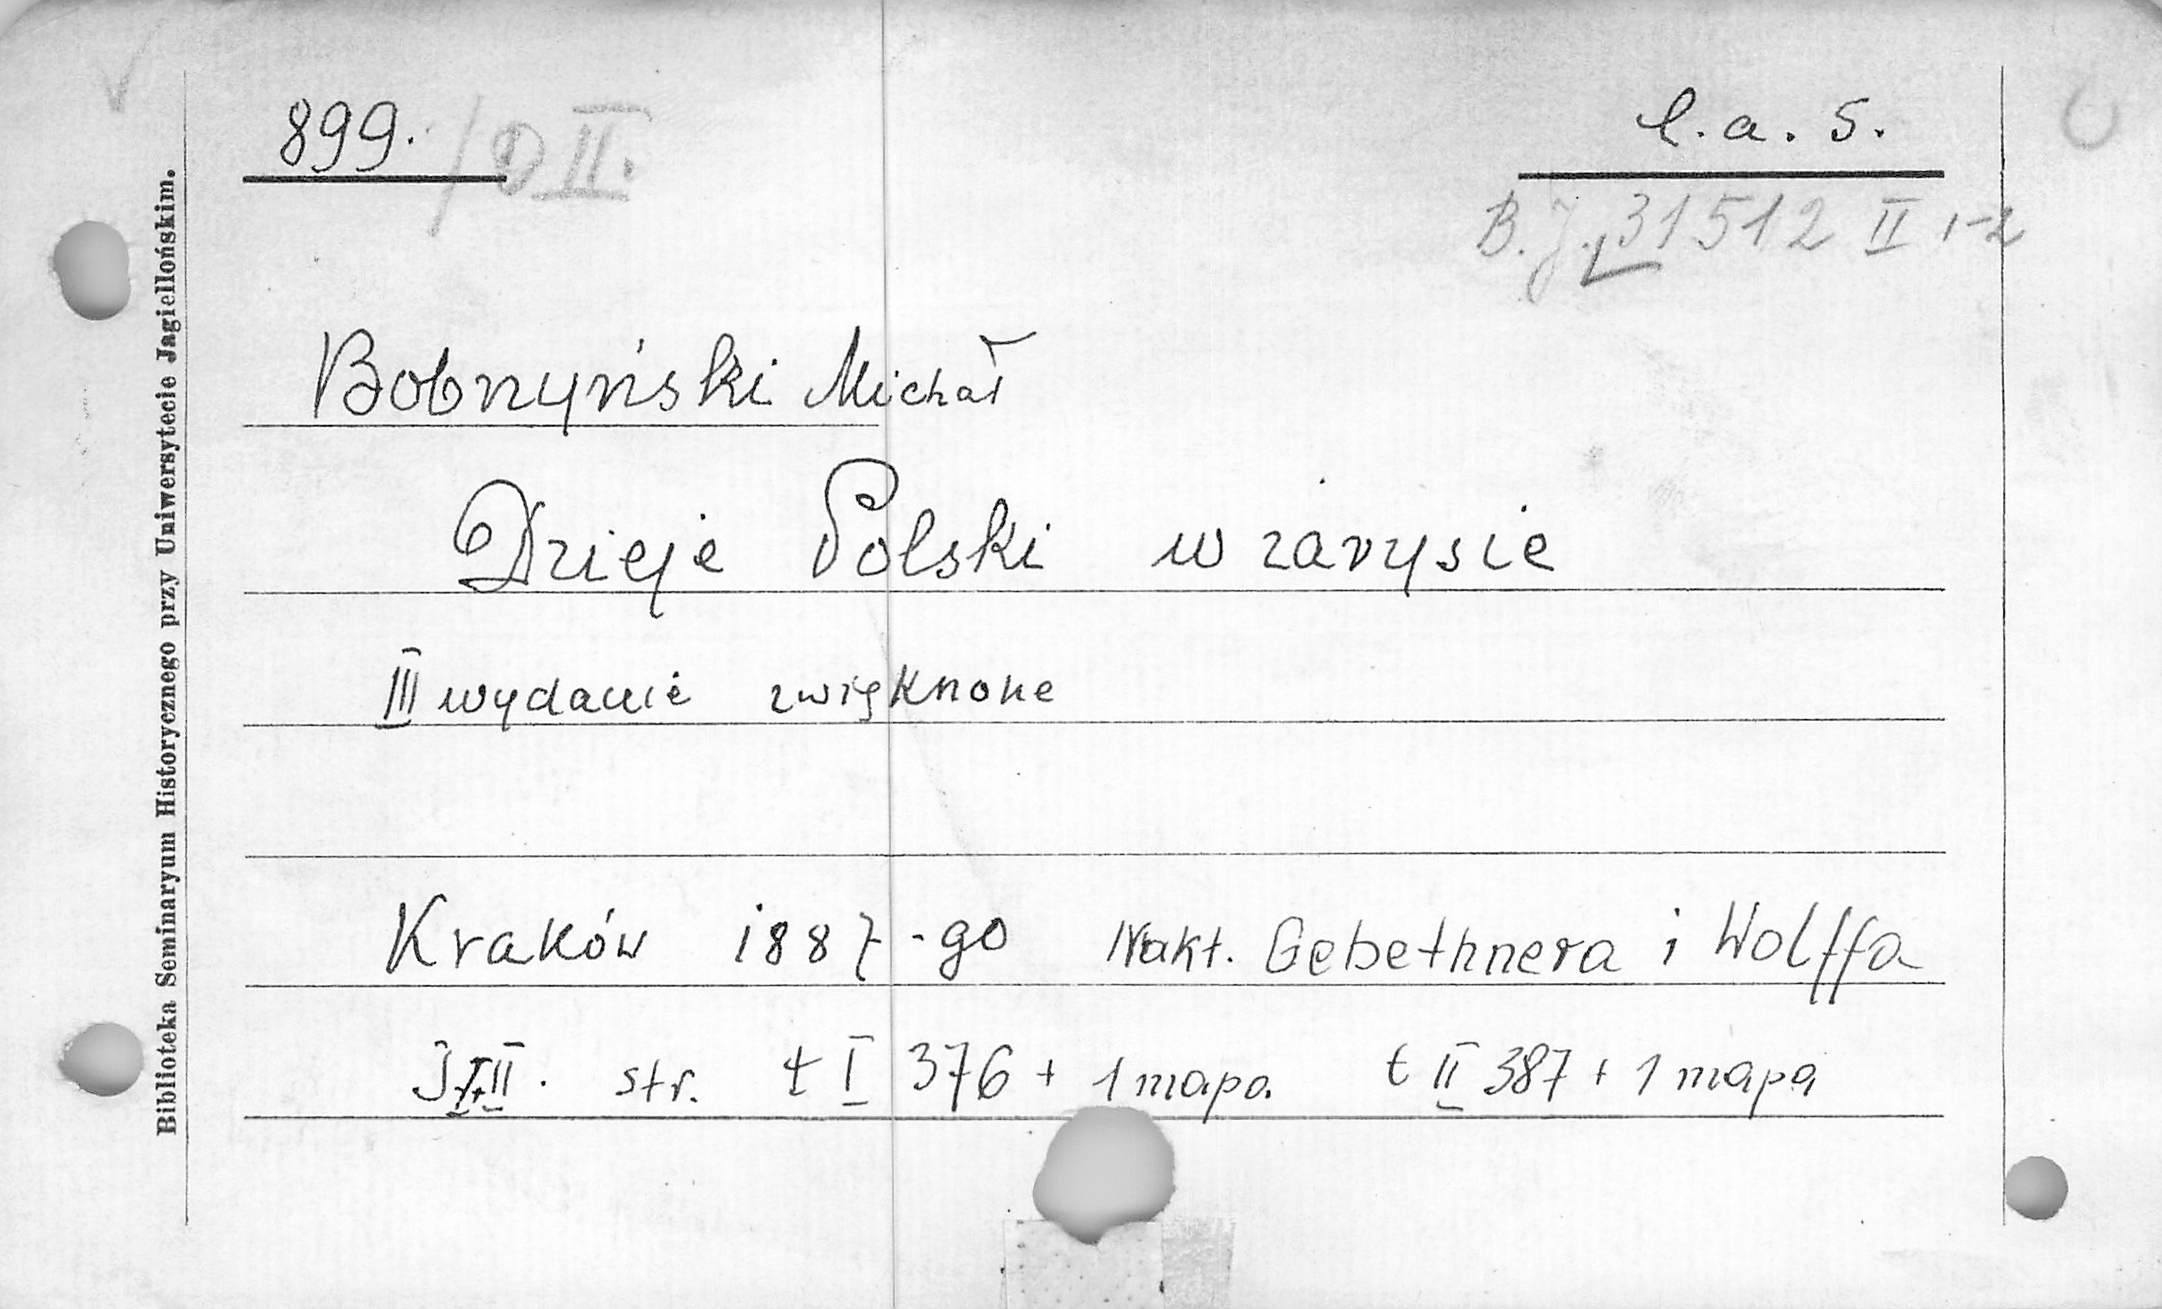 899. / D II.
l. a. s.
B. J. 31512 II 1-2
Bobrzyński Michał
Dzieje Polski w zarysie
III wydanie zwiększone
Kraków 1887-go Nakł. Gebethnera i Wolffa
I+II. str. t I 376 + 1 mapa t II 387 + 1 mapa
Biblioteka Seminaryum Historycznego przy Uniwersytecie Jagiellońskim.